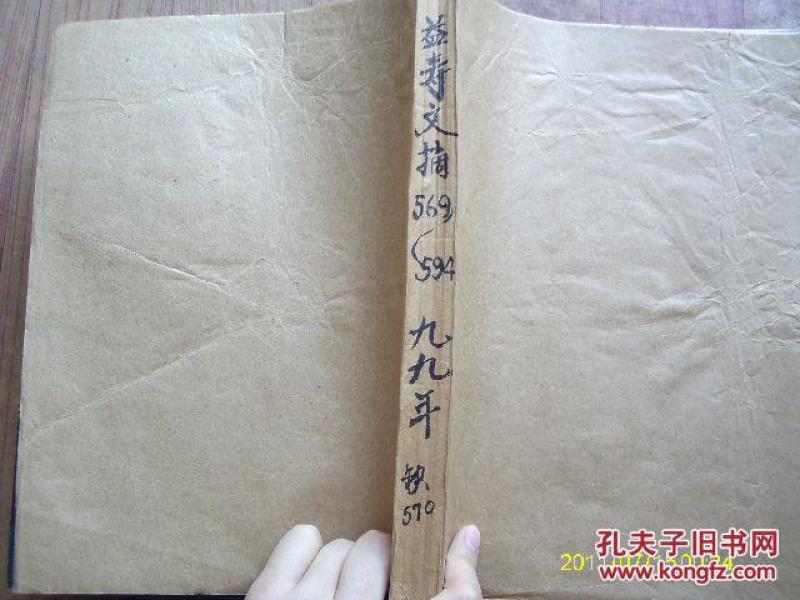 益寿文摘
569
594
九九年
缺
570
孔夫子旧书网
www.kongfz.com